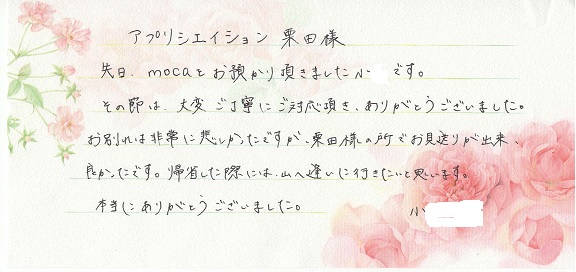 アプリシエイション 栗田様
先日、mocaをお預かり頂きました小 です。
その節は、大変ご丁寧にご対応頂き、ありがとうございました。
お別れは非常に悲しかったですが、栗田様の所でお見送りが出来、
良かったです。帰省した際には、山へ逢いに行きたいと思います。
本当にありがとうございました。
小